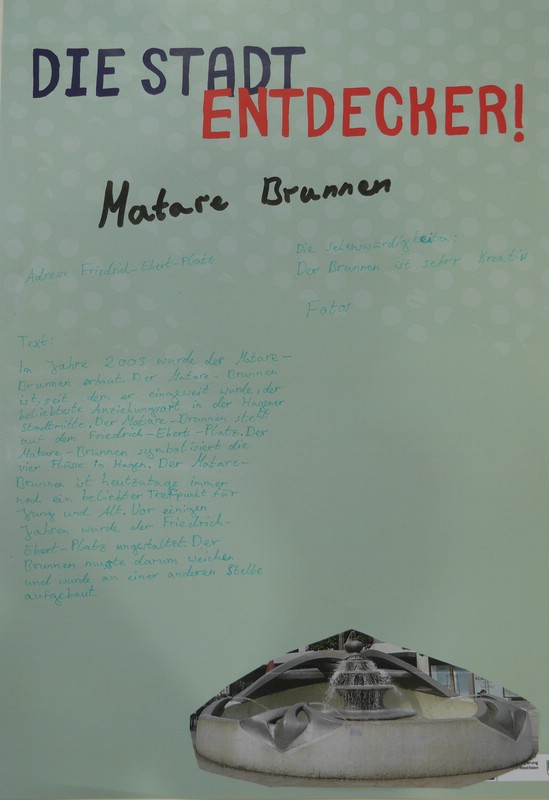 DIE STADT
ENTDECKER!
Matare Brunnen
Adresse Friedrich-Ebert-Platz
Die sehenswürdigkeiten:
Der Brunnen ist sehr Kreativ
Fotos
Text:
Im Jahre 2003 wurde der Matare-
Brunnen erbaut. Der Matare-Brunnen
ist, seit dem er eingeweit wurde, der
beliebteste Anziehungsort in der Hagener
Stadtmitte. Der Matare-Brunnen steht
auf dem Friedrich-Ebert-Platz. Der
Matare-Brunnen symbolisiert die
vier Flüsse in Hagen. Der Matare-
Brunnen ist heutzutage immer
noch ein beliebter Treffpunkt für
Jung und Alt. Vor einigen
Jahren wurde der Friedrich-
Ebert-Platz umgestaltet. Der
Brunnen musste darum weichen
und wurde an einer anderen Stelle
aufgebaut.